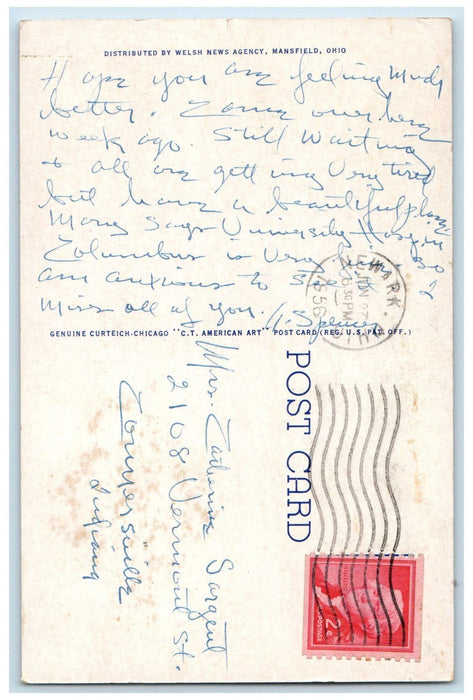 DISTRIBUTED BY WELSH NEWS AGENCY, MANSFIELD, OHIO
Hope you are feeling much
better. Came over here
week ago. Still waiting
+ all are getting very tired
but have a beautiful place
Mary says University Hosp. in
Columbus is very
am anxious to see it
Miss all of you. Spencer
GENUINE CURTEICH-CHICAGO "C.T. AMERICAN ART" POST CARD (REG. U.S. PAT. OFF.)
NEWARK, OHIO
JUN 27
6 30 PM
1956
POST CARD
Mrs. Catherine Sargent
2108 Vermont St.
Connersville
Indiana
2¢
POSTAGE